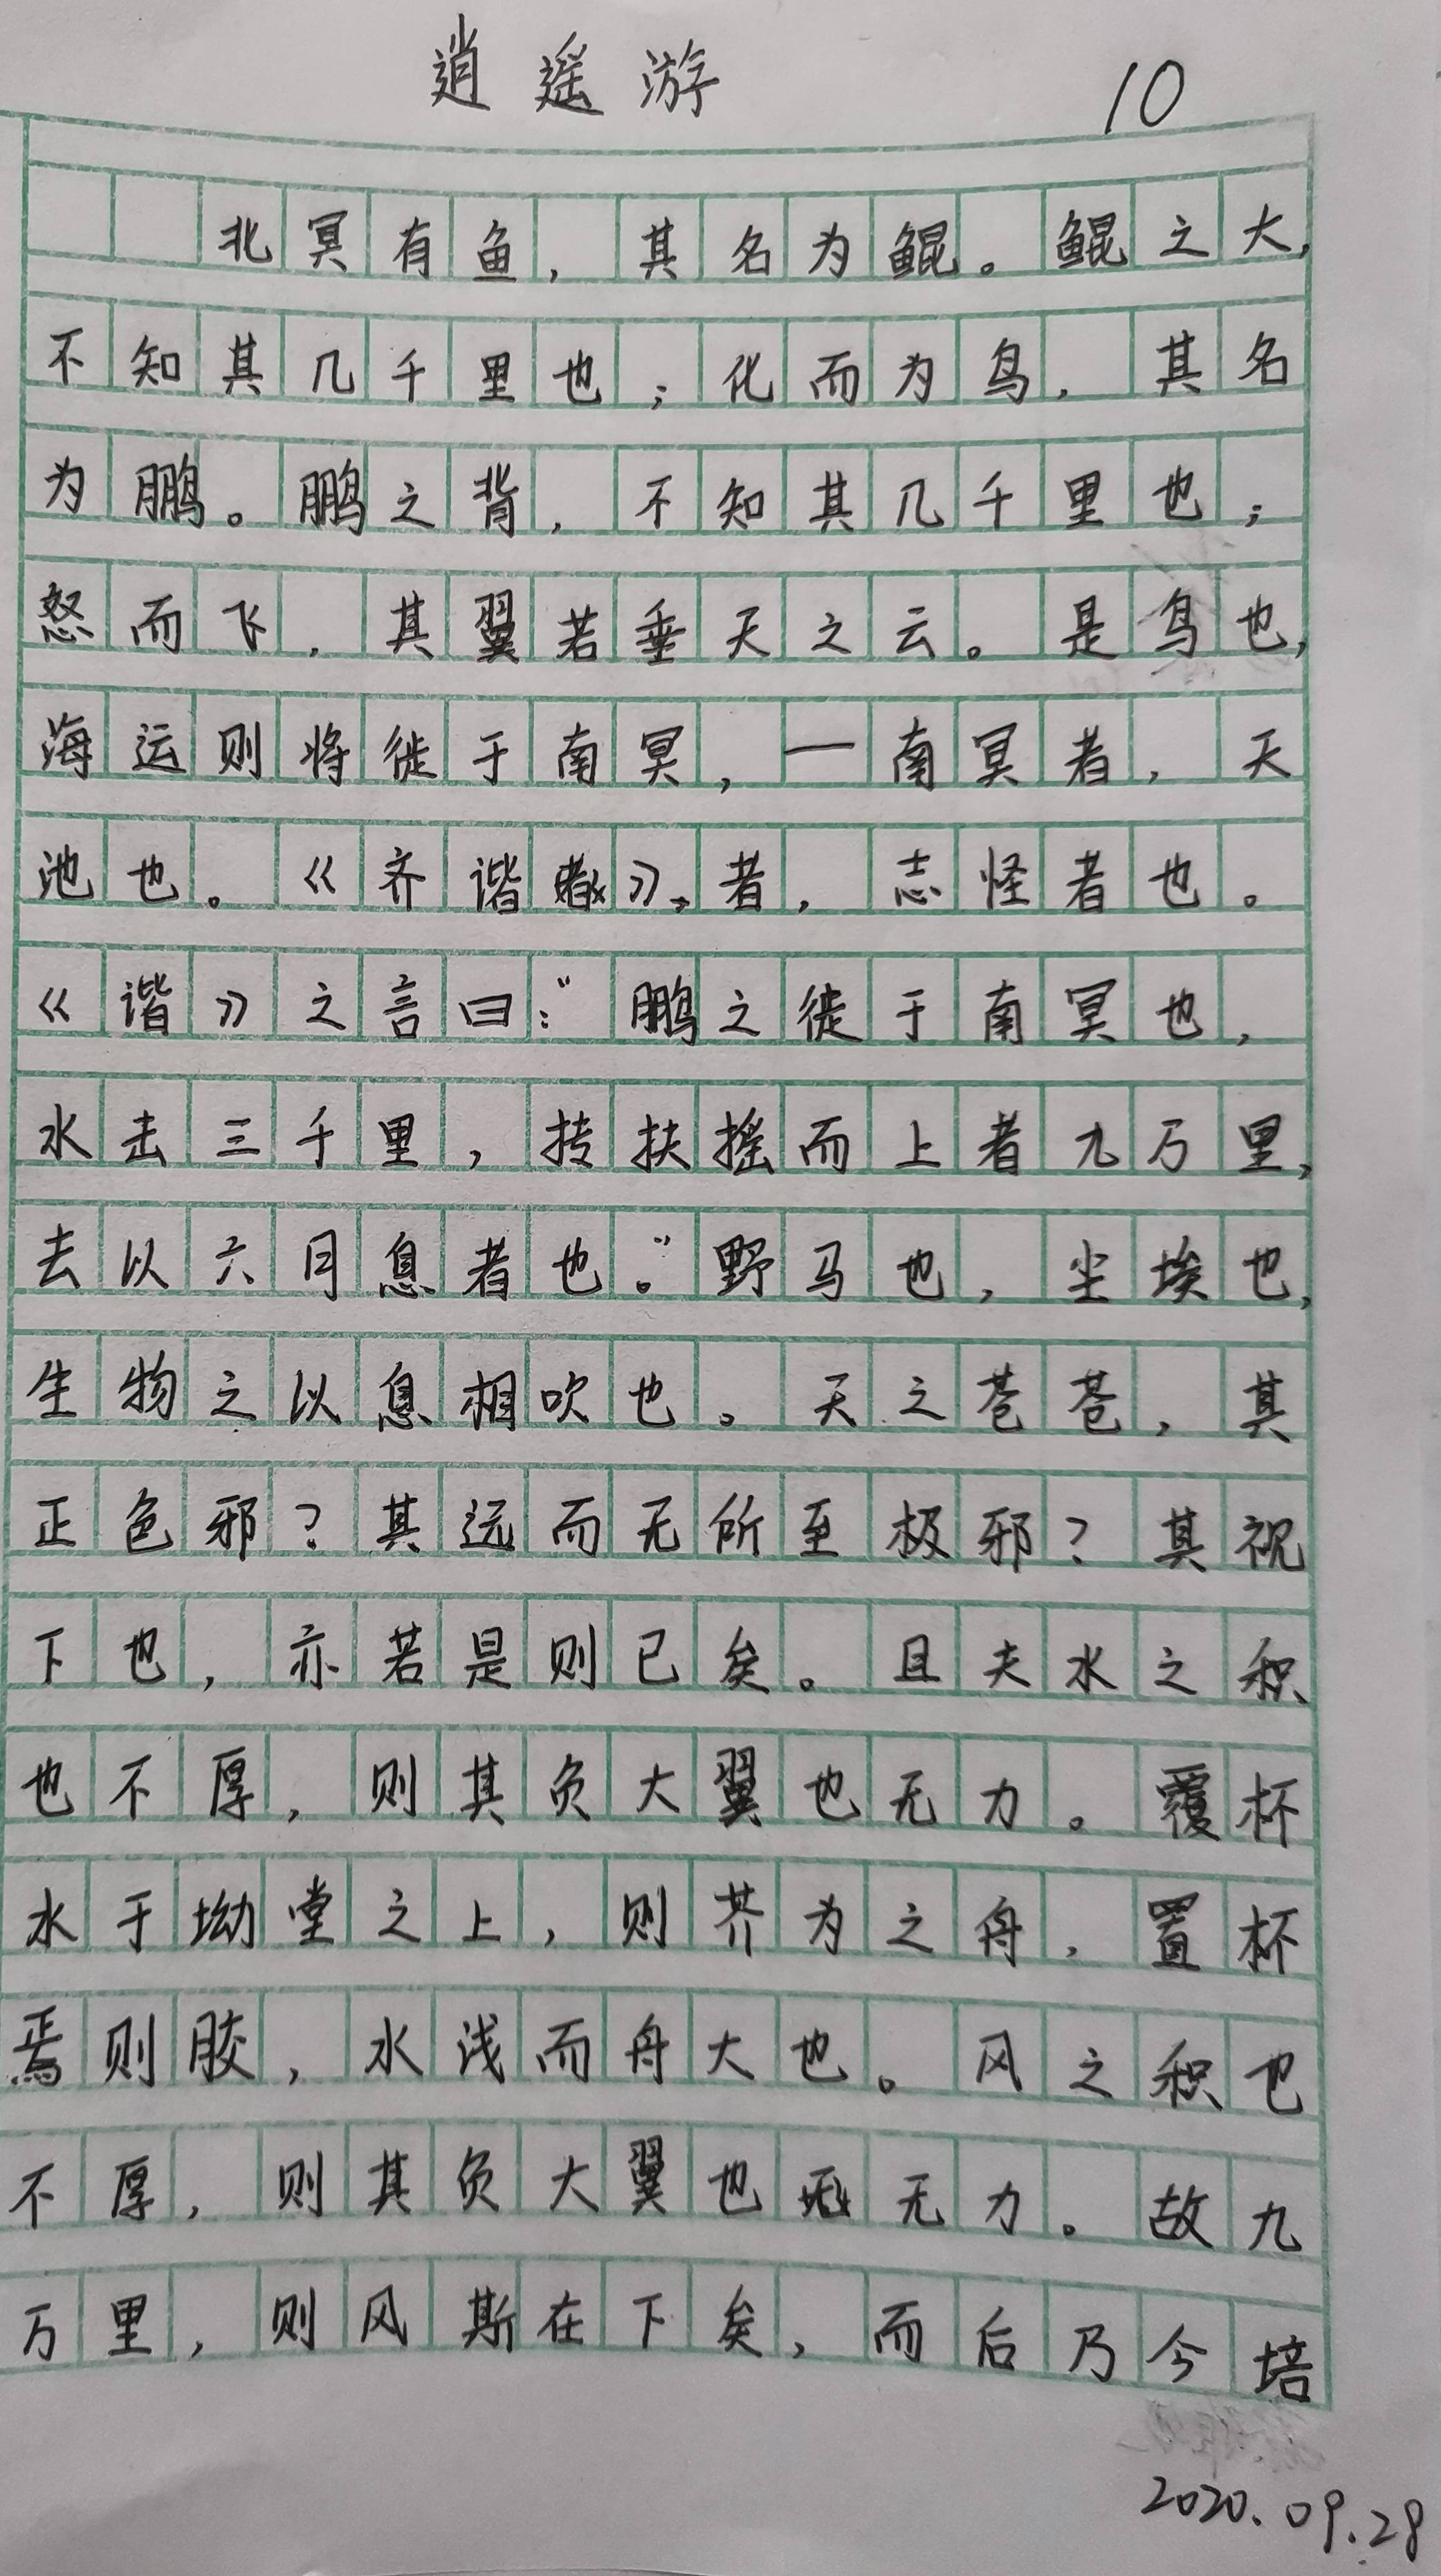 逍遥游
10
北冥有鱼，其名为鲲。鲲之大，
不知其几千里也；化而为鸟，其名
为鹏。鹏之背，不知其几千里也；
怒而飞，其翼若垂天之云。是鸟也，
海运则将徙于南冥，一南冥者，天
池也。《齐谐》者，志怪者也。
《谐》之言曰：“鹏之徙于南冥也，
水击三千里，抟扶摇而上者九万里，
去以六月息者也。”野马也，尘埃也，
生物之以息相吹也。天之苍苍，其
正色邪？其远而无所至极邪？其视
下也，亦若是则已矣。且夫水之积
也不厚，则其负大翼也无力。覆杯
水于坳堂之上，则芥为之舟，置杯
焉则胶，水浅而舟大也。风之积也
不厚，则其负大翼也无力。故九
万里，则风斯在下矣，而后乃今培
2020.09.28